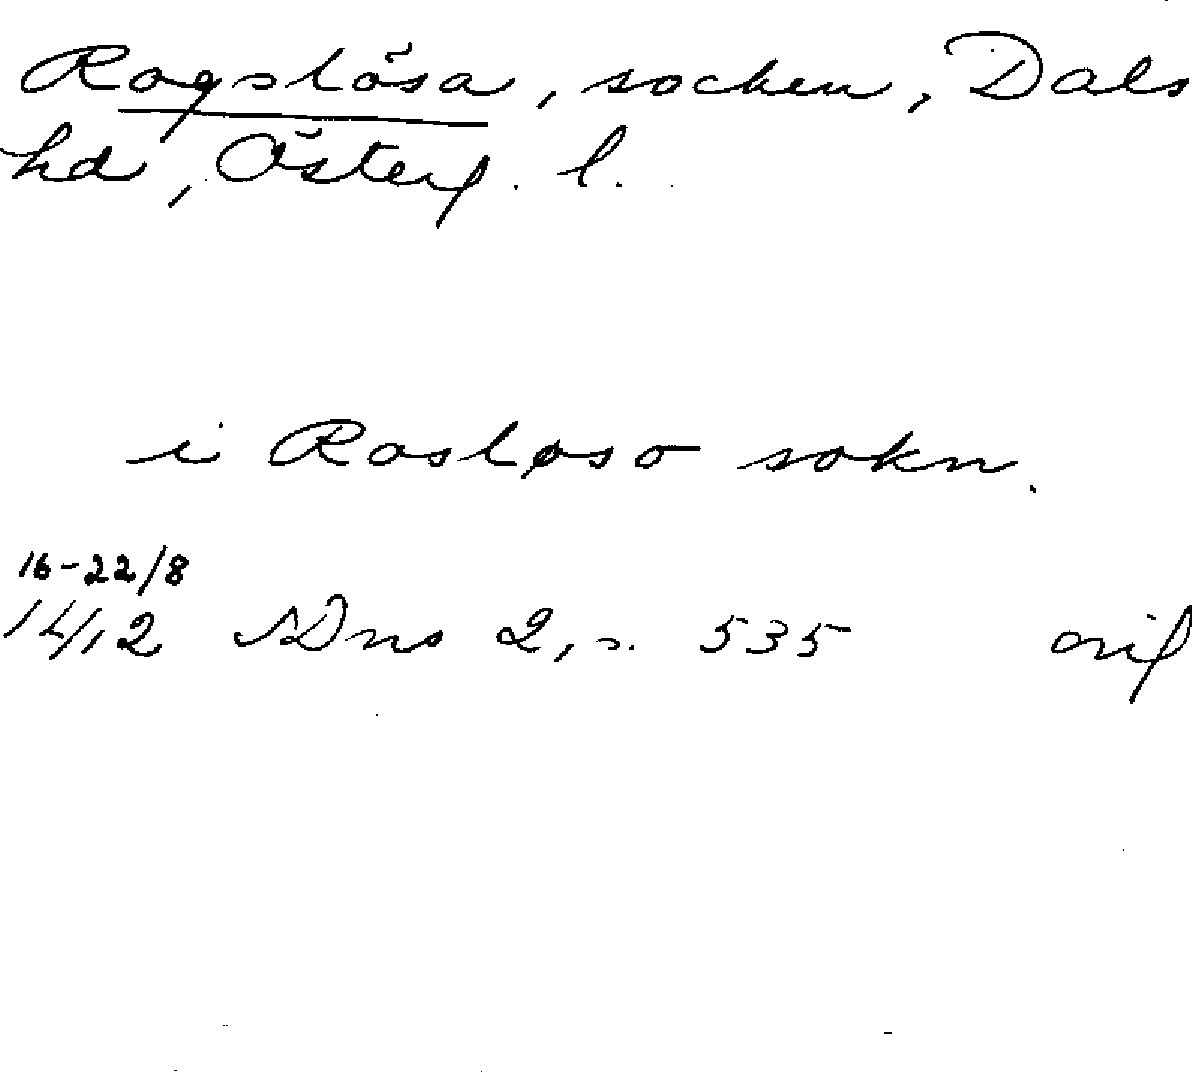 Rogslösa, socken, Dals
hd, Österg. l.
i Rosløso sokn.
16-22/8
1412 SDns 2, s. 535 orig